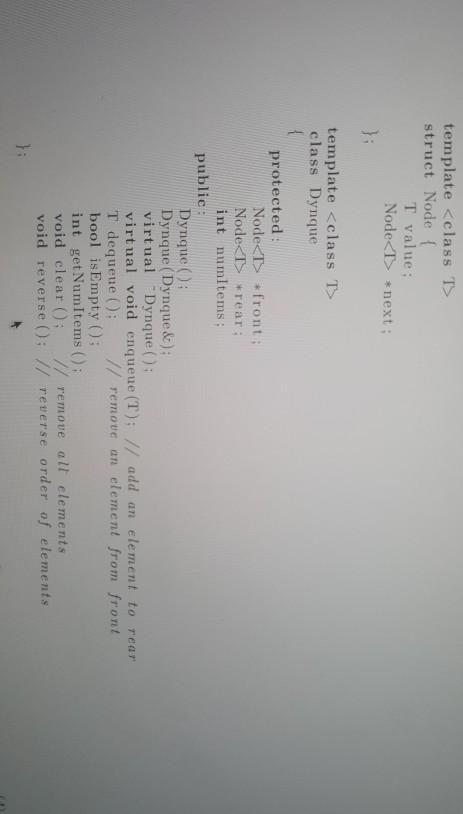 template <class T>
struct Node {
T value;
Node<T> *next;
};
template <class T>
class Dynque
{
protected:
Node<T> *front;
Node<T> *rear;
int numItems;
public:
Dynque();
Dynque(Dynque&);
virtual ~Dynque();
virtual void enqueue(T); // add an element to rear
T dequeue(); // remove an element from front
bool isEmpty();
int getNumItems();
void clear(); // remove all elements
void reverse(); // reverse order of elements
};